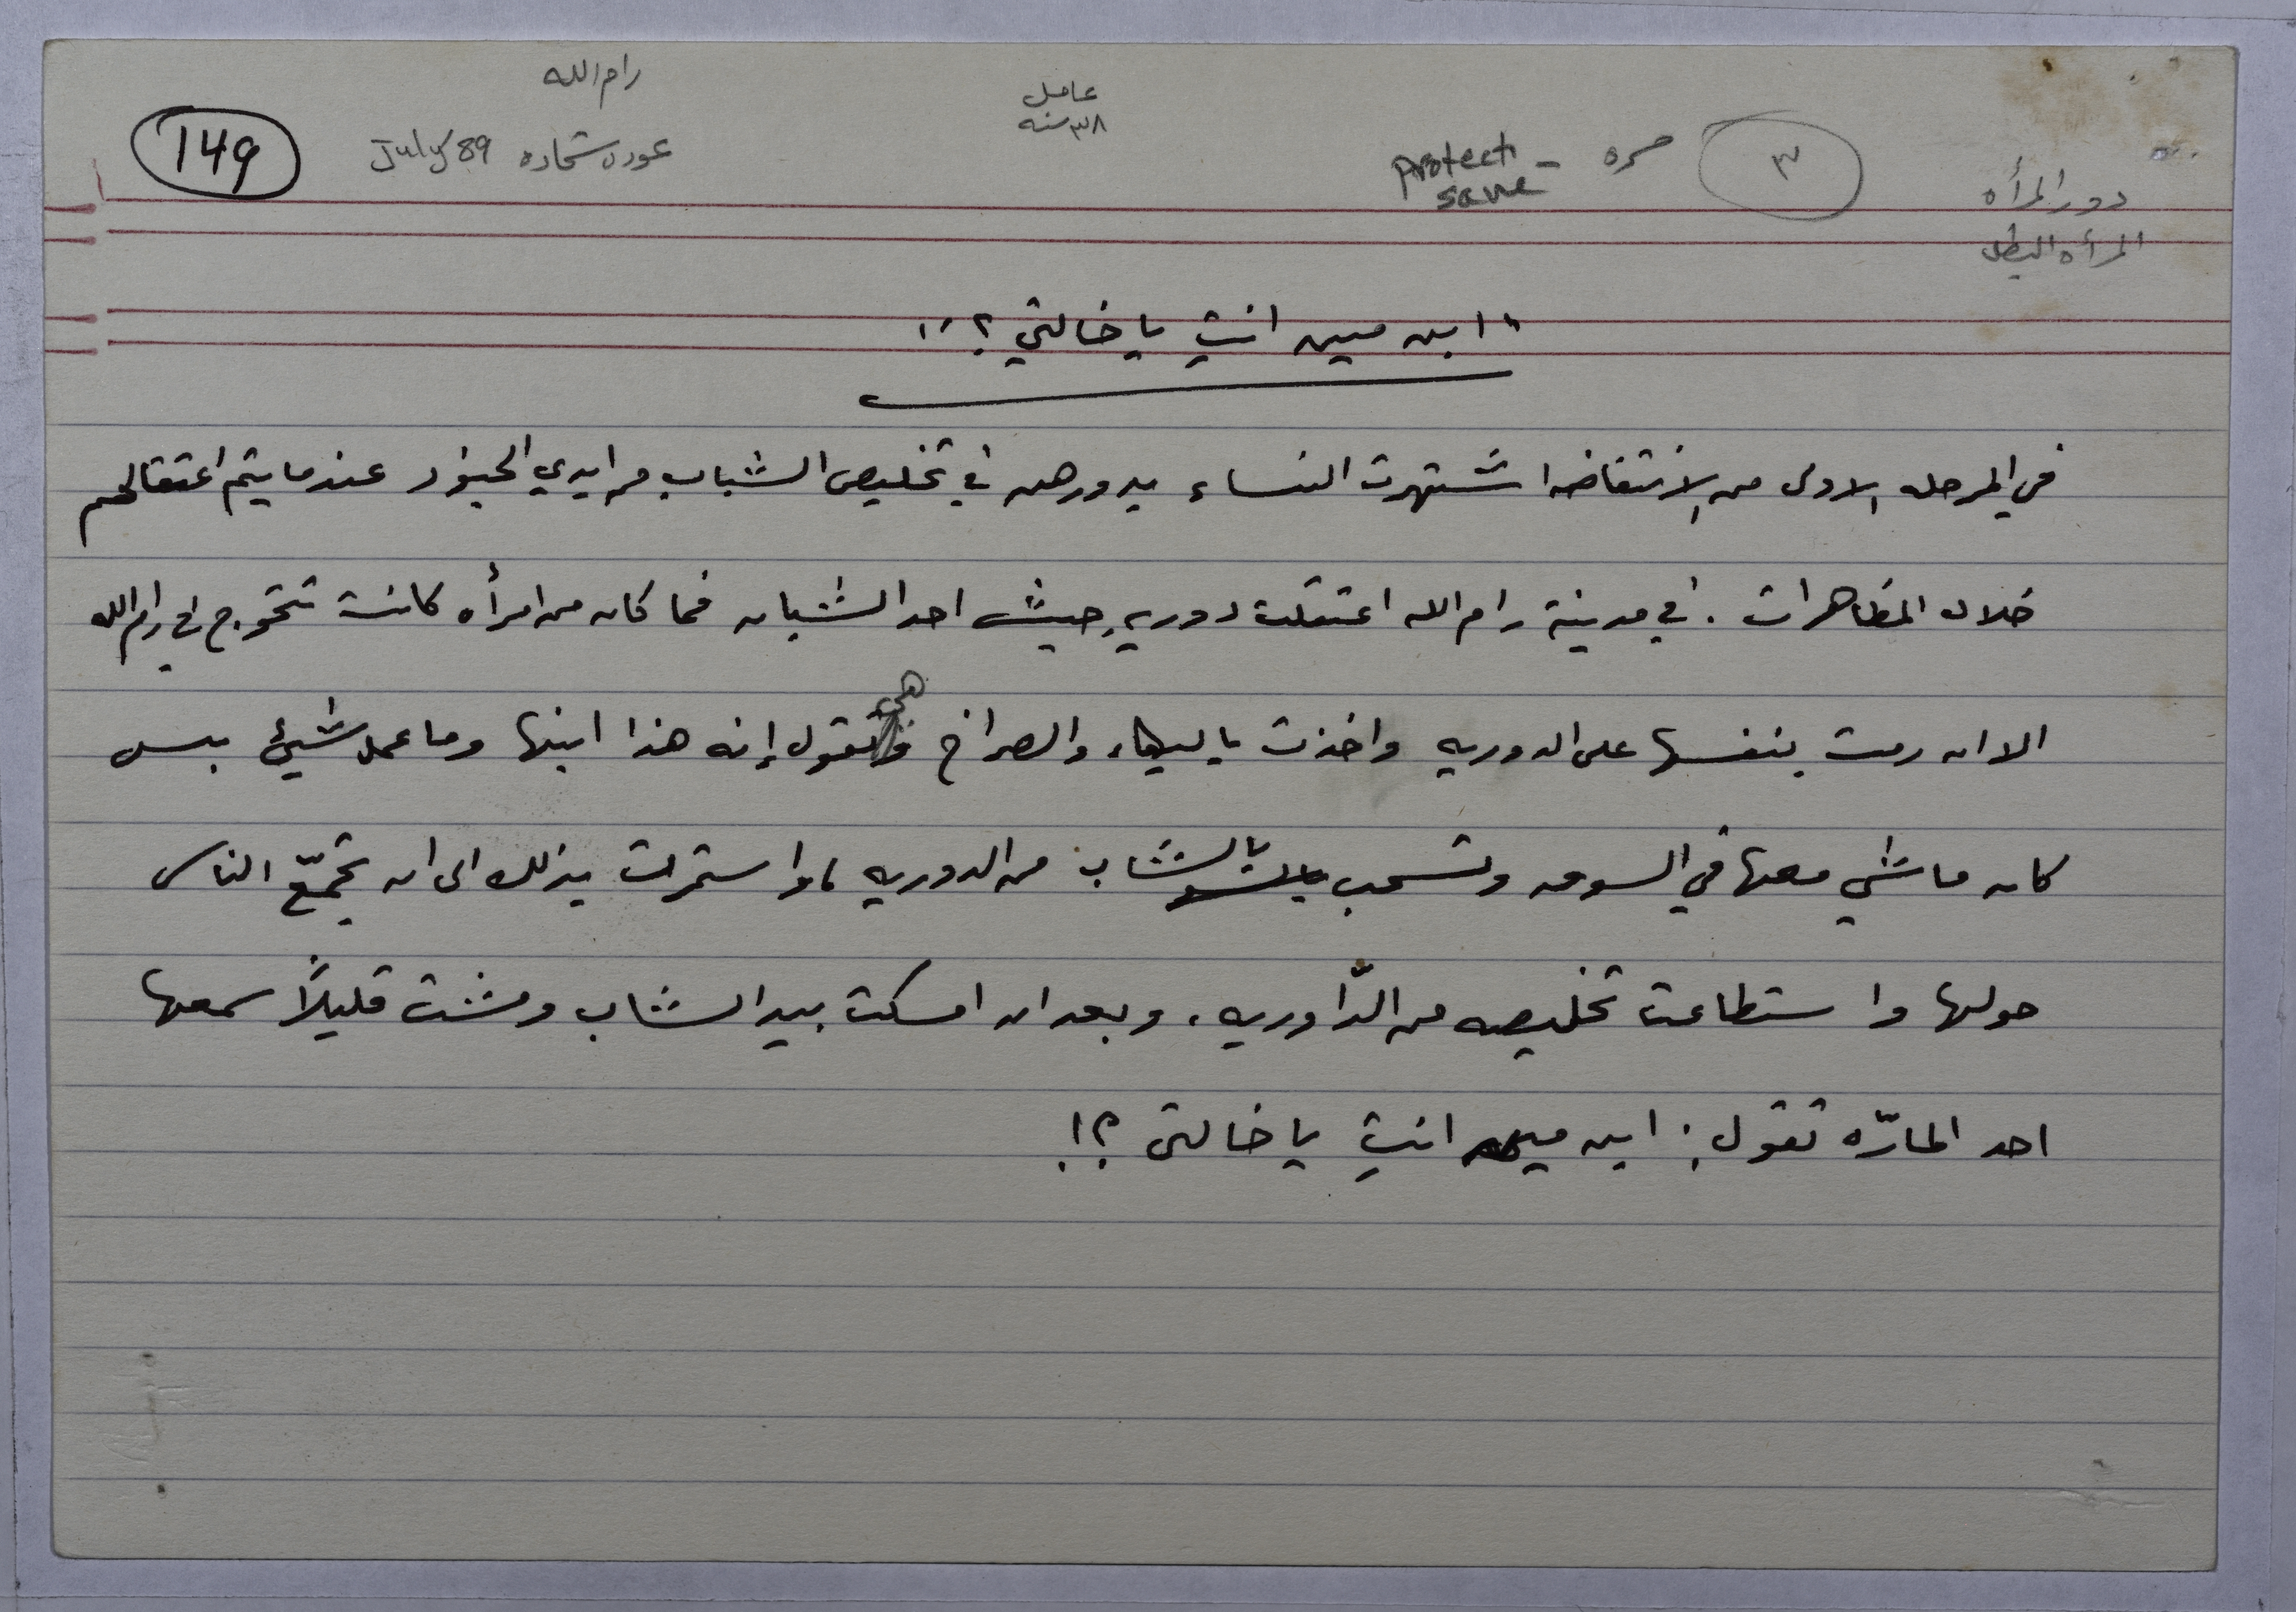 رام الله
149
عودى شحاده July 89
عامل
٣٨ سنه
Protect -
save
مره
٣
دور المرأه
المرأه البطل
"ابن مين انتِ يا خالتي؟!"
في المرحله الاولى من الانتفاضه اشتهرت النساء بدورهن في تخليص الشباب من ايدي الجنود عندما يتم اعتقالهم
خلال المظاهرات . في مدينة رام الله اعتقلت دورية جيش احد الشبان فما كان من امرأه كانت تتحوج في رام الله
الا ان رمت بنفسها على الدوريه واخذت بالبكاء والصراخ وهي تقول إنه هذا ابنها وما عمل شيئ بس
كان ماشي معها في السوق وتسحب بالشاب من الدوريه ، واستمرت بذلك الى ان تجمّع الناس
حولها واستطاعت تخليصه من الدّاوريه ، وبعد ان امسكت بيد الشاب ومشت قليلاً سمعها
احد المارّه تقول : ابن مين انتِ يا خالتي ؟!